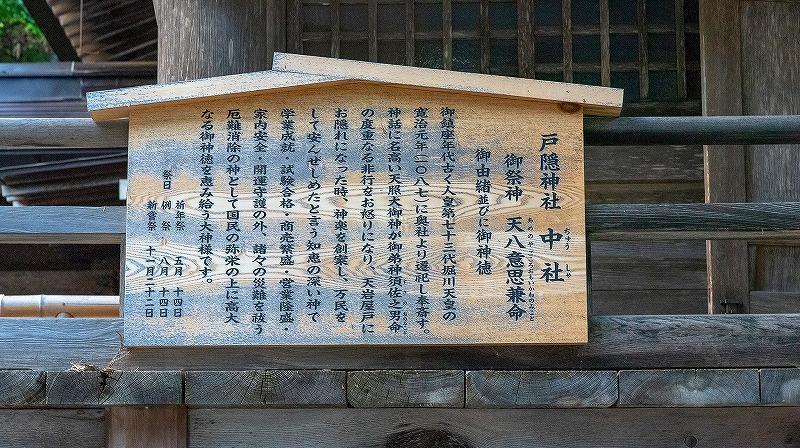 戸隠神社　中社
ちゅう　しゃ
御祭神　天八意思兼命
あめのやごころおもいかねのみこと
御由緒並びに御神徳
御鎮座年代古く人皇第七十三代堀川天皇の
寛治元年（一〇八七）に奥社より遷祀し奉斎す。
神話に名高い天照大御神が御弟神須佐之男命
の度重なる非行をお怒りになり、天岩屋戸に
お隠れになった時、神楽を創案し、万民を
して安んぜしめたと言う知恵の深い神で
学業成就・試験合格・商売繁盛・営業隆盛・
家内安全・開運守護の外、諸々の災難を祓う
厄難消除の神として国民の弥栄の上に高大
なる御神徳を恵み給う大神様です。
祭日　祈年祭　五月　十四日
例祭　八月　十四日
新嘗祭　十一月二十二日